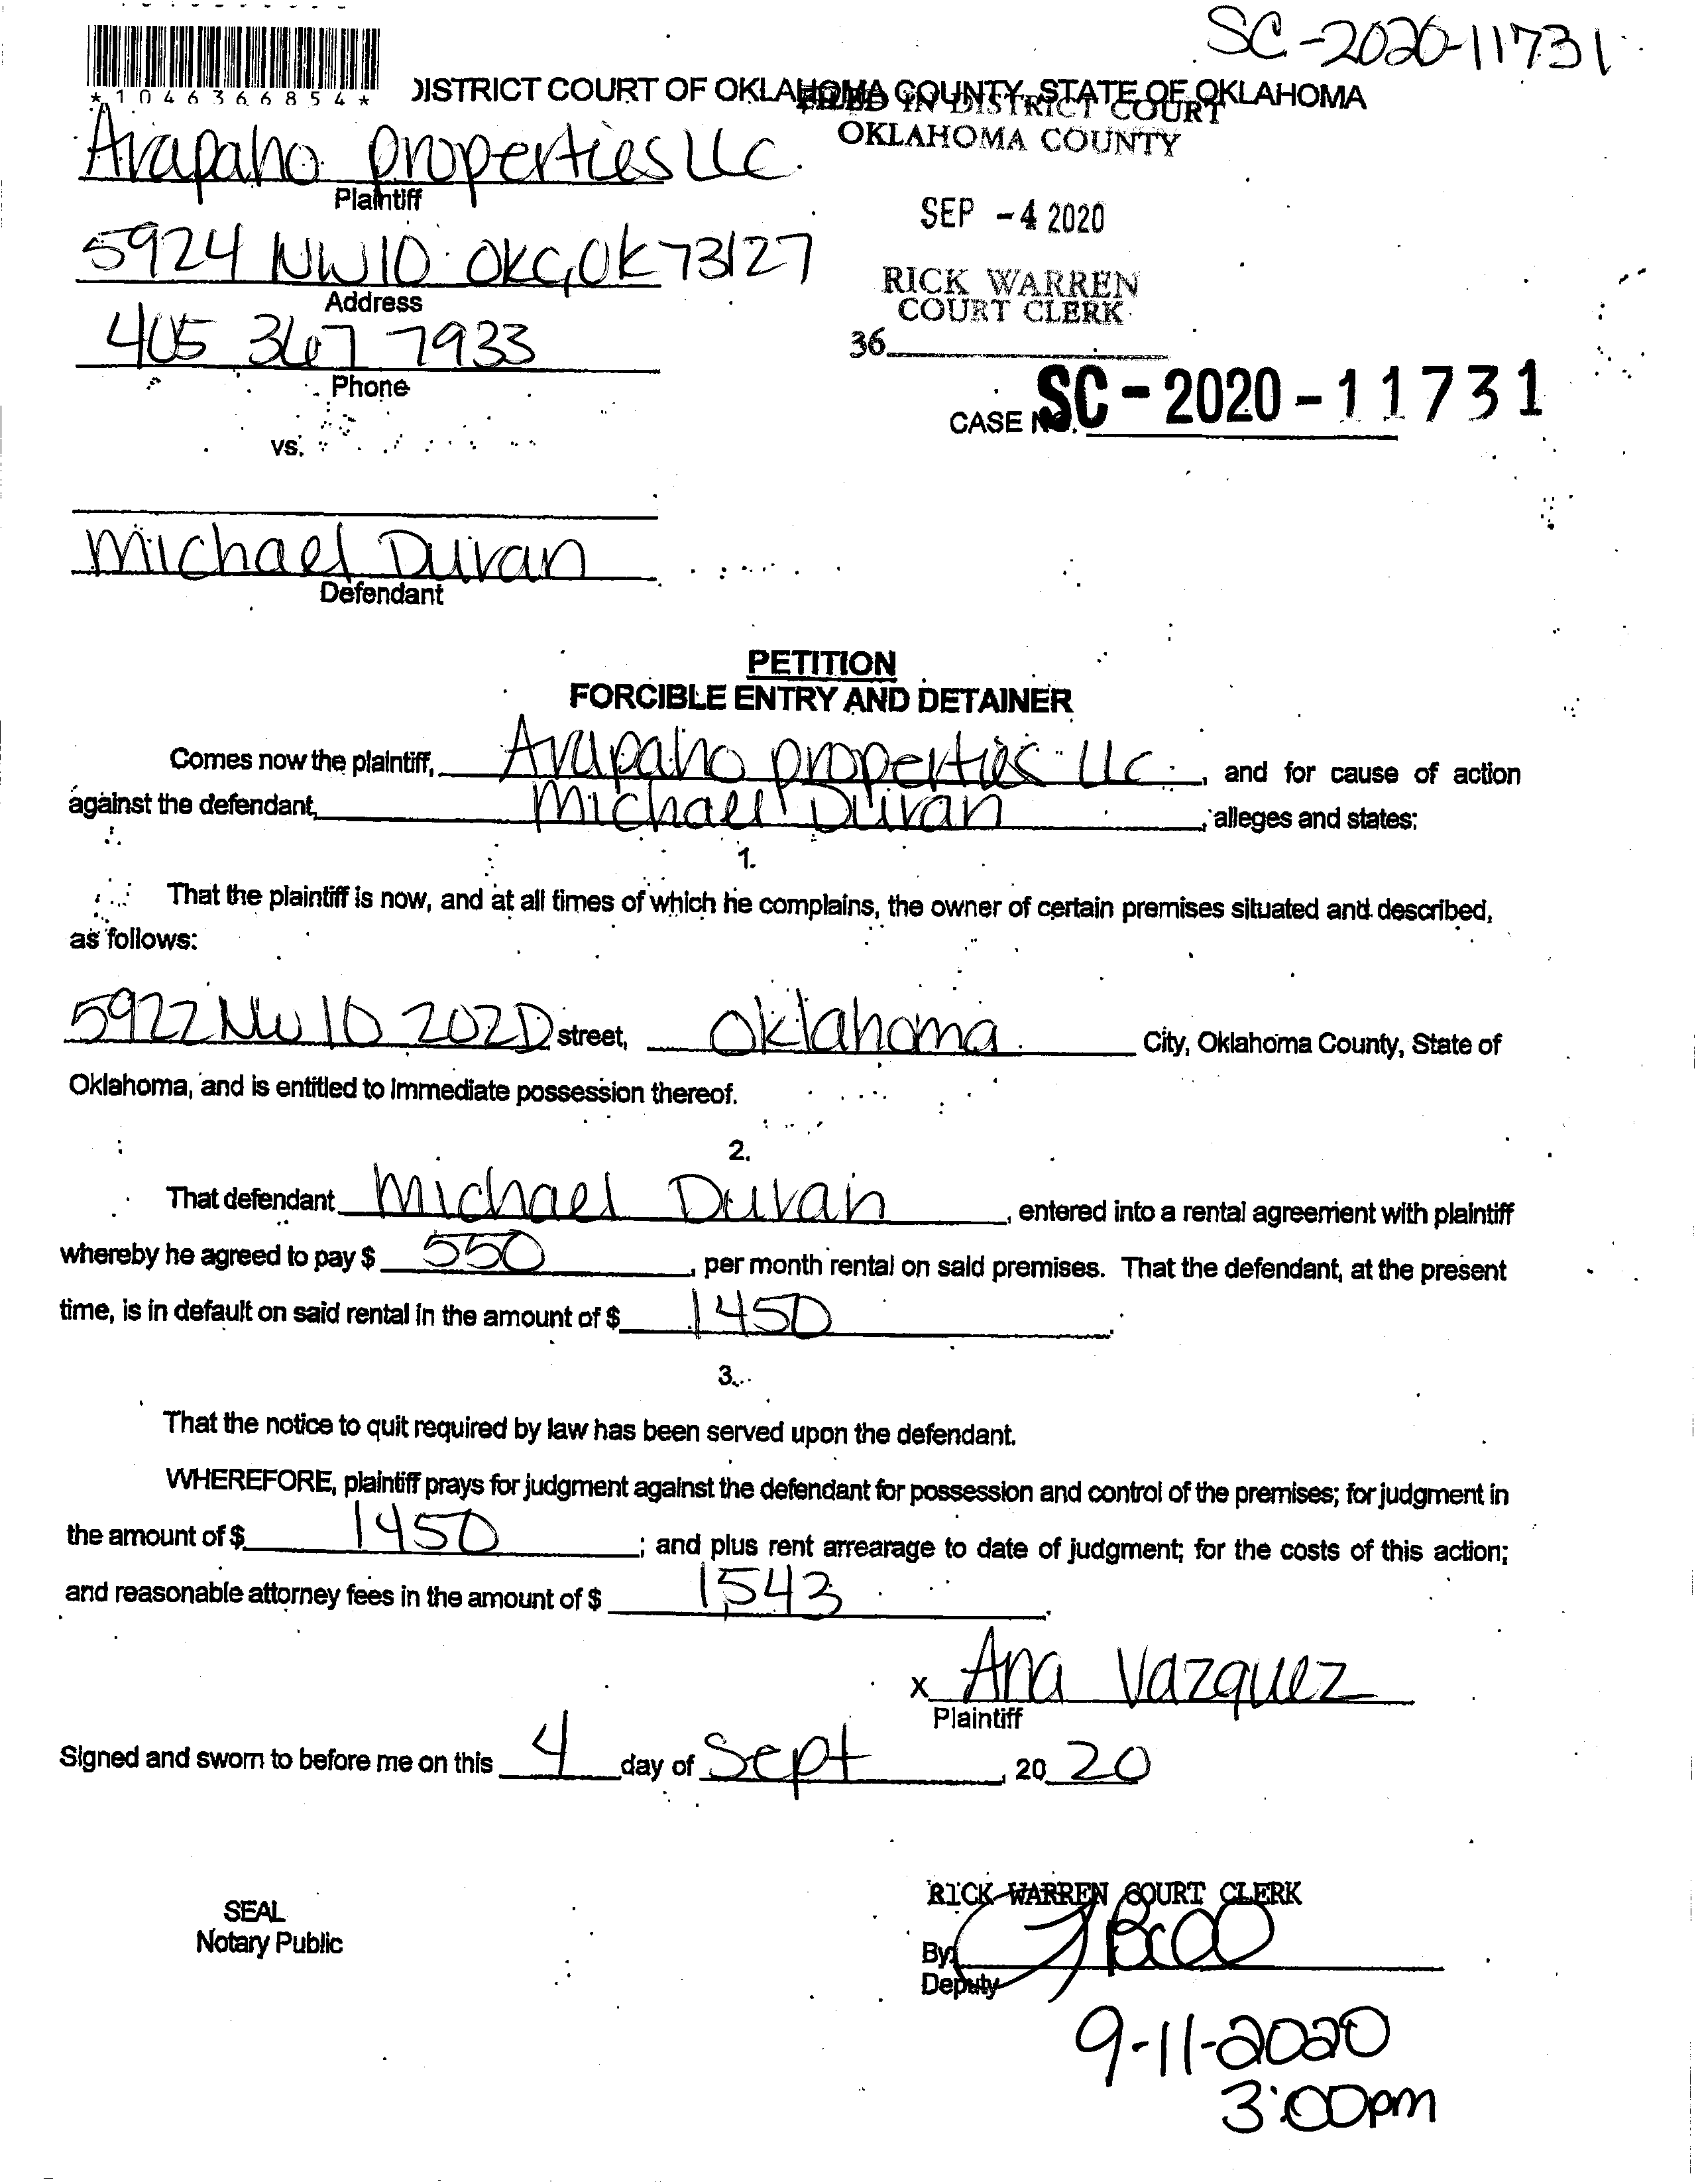 SC-2020-11731
*1046366854*
DISTRICT COURT OF OKLAHOMA COUNTY, STATE OF OKLAHOMA
FILED IN DISTRICT COURT
OKLAHOMA COUNTY
Arapaho properties LLC.
Plaintiff
SEP -4 2020
5924 NW 10 OKC, OK 73127
Address
RICK WARREN
COURT CLERK
405 367 7933
Phone
36
CASE NO. SC-2020-11731
vs.
Michael Duran
Defendant
PETITION
FORCIBLE ENTRY AND DETAINER
Comes now the plaintiff, Arapaho properties LLC., and for cause of action
against the defendant, Michael Duran, alleges and states:
1.
That the plaintiff is now, and at all times of which he complains, the owner of certain premises situated and described,
as follows:
5922 NW 10 202D street, Oklahoma City, Oklahoma County, State of
Oklahoma, and is entitled to immediate possession thereof.
2.
That defendant Michael Duran, entered into a rental agreement with plaintiff
whereby he agreed to pay $ 550, per month rental on said premises. That the defendant, at the present
time, is in default on said rental in the amount of $ 1450.
3.
That the notice to quit required by law has been served upon the defendant.
WHEREFORE, plaintiff prays for judgment against the defendant for possession and control of the premises; for judgment in
the amount of $ 1450; and plus rent arrearage to date of judgment; for the costs of this action;
and reasonable attorney fees in the amount of $ 1,543.
x Ana Vazquez
Plaintiff
Signed and sworn to before me on this 4 day of Sept, 20 20
RICK WARREN COURT CLERK
SEAL
Notary Public
By:
Deputy
9-11-2020
3:00pm